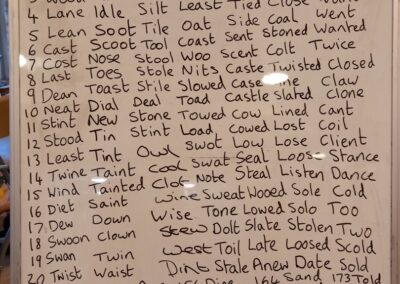 4 Lane Idle Silt Least Tied Close
5 Lean Soot Tile Oat Side coal Went
6 Cast Scoot Tool Coast Sent Stoned Wanted
7 Cost Nose Stool Woo Scent Colt Twice
8 Last Toes Stole Nits Caste Twisted Closed
9 Dean Toast Stile Slowed Case Claw
10 Neat Dial Deal Toad Castle Slated Clone
11 Stint New Stone Towed Cow Lined Cant
12 Stood Tin Stint Load Cowed Lost Coil
13 Least Tint Owl Swot Low Lose Client
14 Twine Taint Cool Swat Seal Loose Stance
15 Wind Tainted Clot Note Steal Listen Dance
16 Diet Saint Wine Sweat Wooed Sole Cold
17 Dew Down Wise Tone Lowed Solo Too
18 Swoon Clown Stew Dolt Slate Stolen Two
19 Swan Twin West Toil Late Loosed Scold
20 Twist Waist Dint Stale Anew Date Sold
164 Sand 173 Told